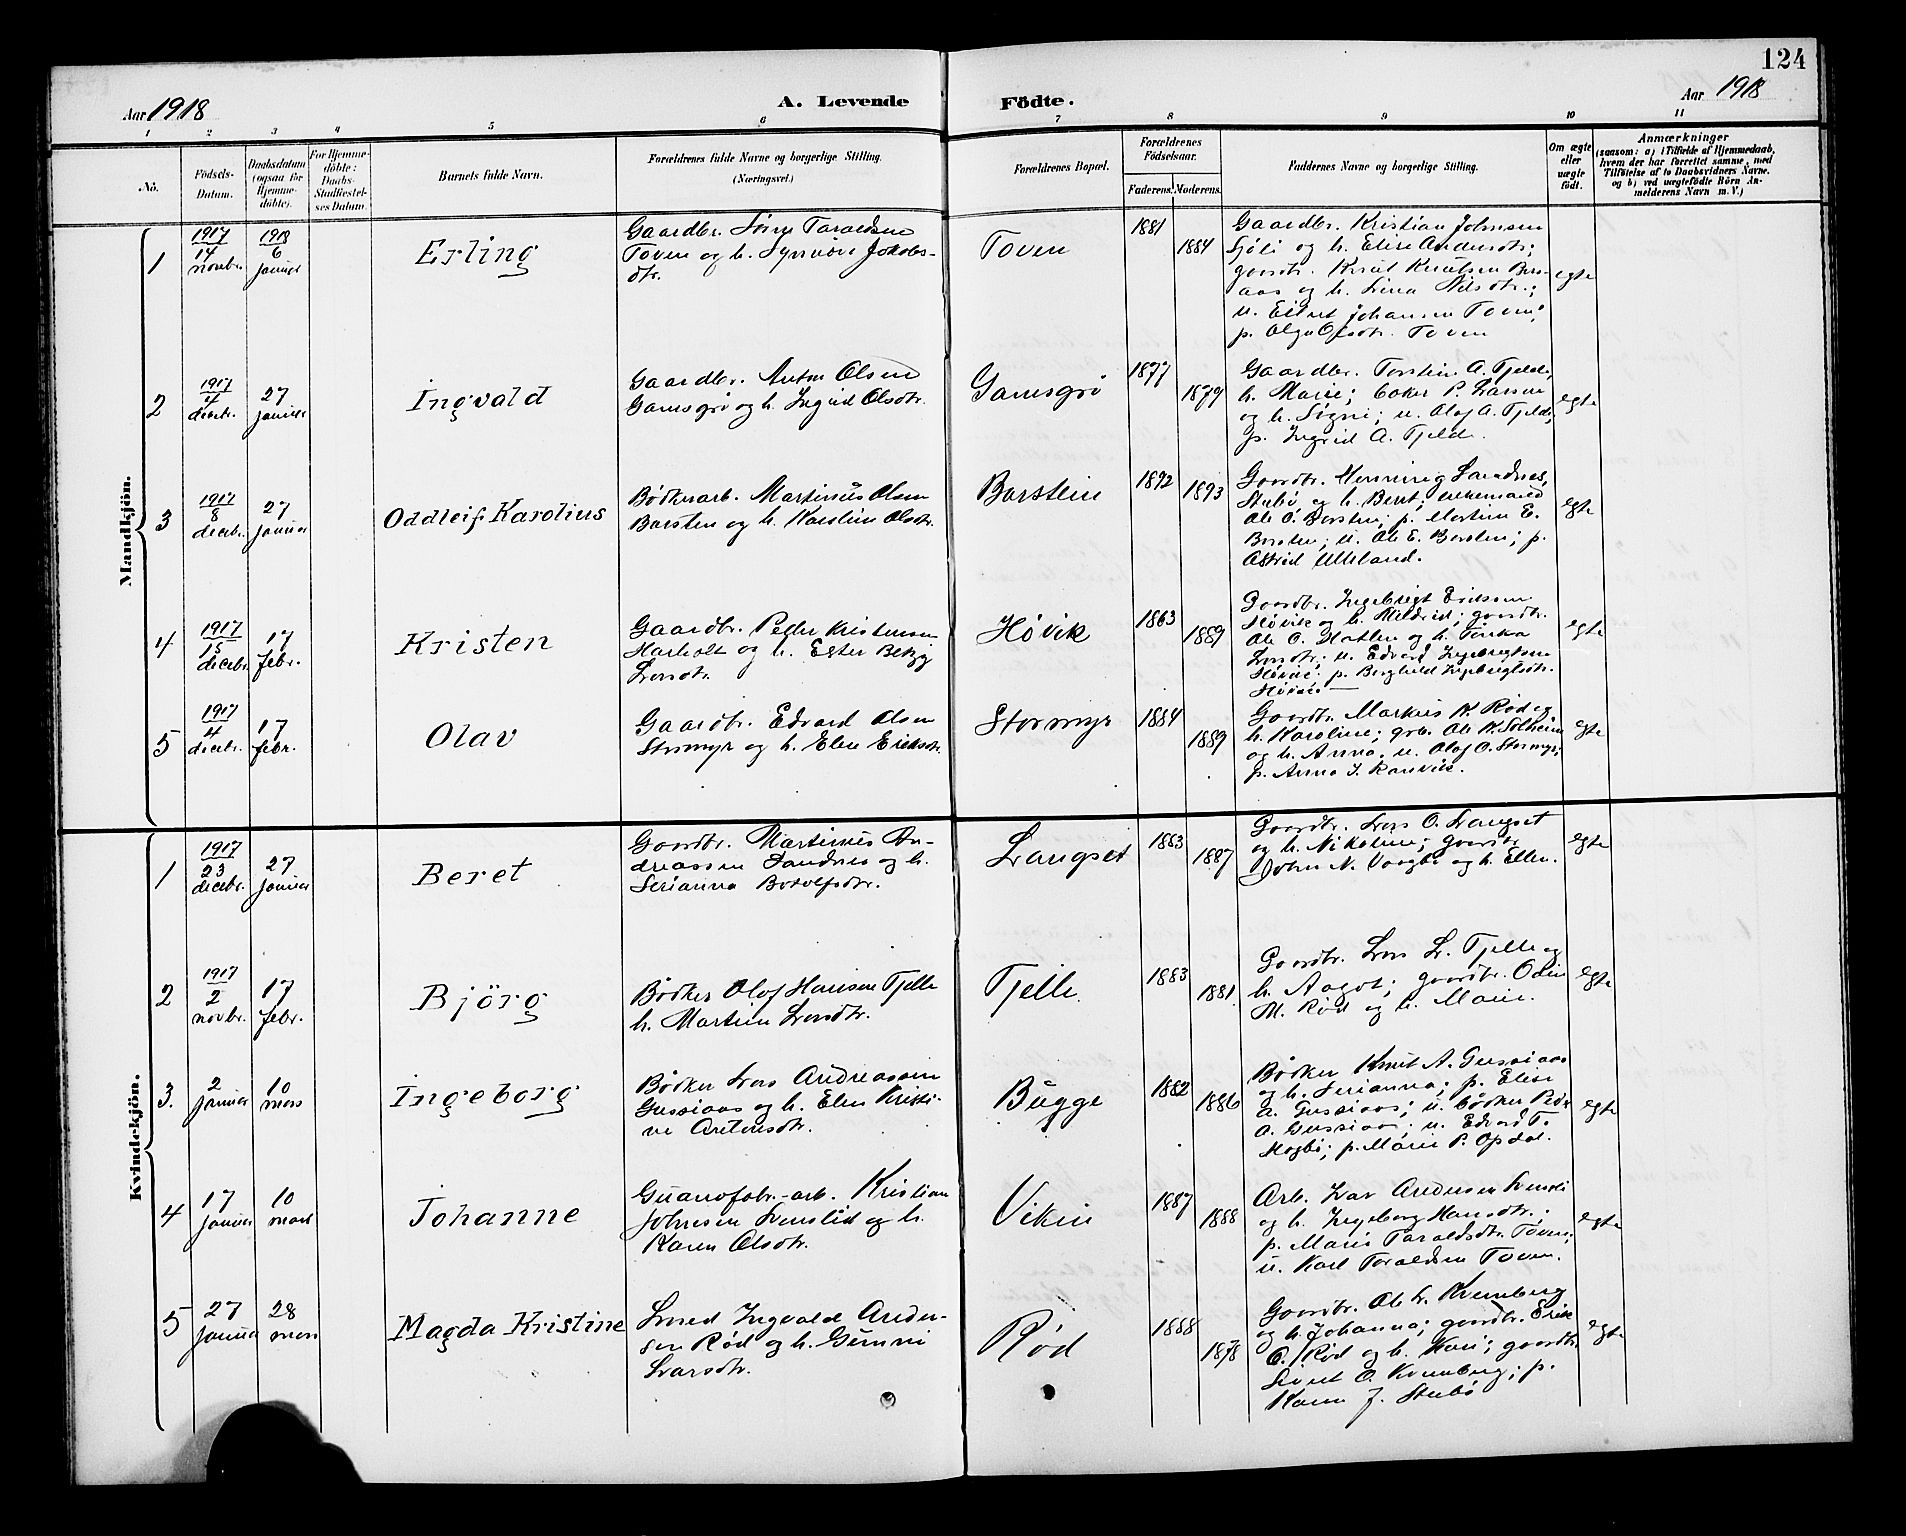 124
Aar 1918
A. Levende Födte.
Aar 1918
1 2 3 4 5 6 7 8 9 10 11
No.
Födsels-Datum.
Daabsdatum (ogsaa for Hjemmedöbte).
For Hjemmedöbte: Daabs-Stadfæstelses Datum.
Barnets fulde Navn.
Forældrenes fulde Navne og borgerlige Stilling. (Næringsvei.)
Forældrenes Bopæl.
Forældrenes Födselsaar.
Faderens. Moderens.
Faddernes Navne og borgerlige Stilling.
Om ægte eller uægte født.
Anmærkninger
(saasom: a) i Tilfælde af Hjemmedaab, hvem der har forrettet samme, med Tilföielse af to Daabsvidners Navne, og b) ved uægtefödte Börn Anmelderens Navn m. V.)
Mandkjön.
1
1917
14
novbr.
1918
6
januar
Erling
Gaardbr.
Toven og h. Synnöve Jakobs-
dtr.
Toven
1881
1884
Gaardbr. Kristian Johnsen
og h. Elise Andersdtr;
gaardbr. Knut Knutsen
og h. Nilsdtr.;
u. Johansen Toven;
p. Olga Olsdtr. Toven
egte
2
1917
4
decbr.
27
januar
Ingvald
Gaardbr. Anton Olsen
Gamsgrø og h. Ingrid Olsdtr.
Gamsgrø
1877
1879
Gaardbr. Torstein A. Tjelde,
h. Marie; P. Larsen
og h. Signi; u. Olaf A. Tjelde,
p. Ingrid A. Tjelde.
egte
3
1917
8
decbr.
27
januar
Oddleif Karolius
Bødkerarb. Martinus Olsen
Barsten og h. Karoline Olsdtr.
Barstein
1892
1893
Gaardbr. Henning Sandnes,
Stubø og h. Beret; enkemand
Ole O. Barsten; p. Martine E.
Barsten; u. Ole E. Barsten; p.
Astrid Ulleland.
egte
4
1917
15
decbr.
17
febr.
Kristen
Gaardbr. Peder Kristensen
Harholt og h. Ester
Larsdtr.
Høvik
1863
1889
Gaardbr. Ingebrigt Eriksen
Høvik og h. Mildrid; gaardbr.
Ole O. Hatlen og h.
Larsdtr; u. Edvard Ingebrigtsen
Høvik; p. Borghild Ingebrigtsdtr.
Høvik
egte
5
1917
4
decbr.
17
febr.
Olav
Gaardbr. Edvard Olsen
Stormyr og h. Elen Eriksdtr.
Stormyr
1884
1889
Gaardbr. Markus K. Rød og
h. Karoline; grb. Ole K. Solheim
og h. Anna. u. Olaf O. Stormyr;
p. Anna J. Ranvik.
egte
Kvindekjön.
1
1917
23
decbr.
27
januar
Beret
Gaardbr. Martinus An-
dreassen Sandnes og h.
Serianna Botolfsdtr.
Langset
1883
1887
Gaardbr. Lars O. Langset
og h. Nikoline; gaardbr.
John N. Vaagbø og h. Ellen.
egte
2
1917
2
novbr.
17
febr.
Björg
Bødker Olaf Hansen Tjelle
h. Martine Larsdtr.
Tjelle
1883
1881
Gaardbr. Lars L. Tjelle og
h. Aagot; gaardbr. Odin
M. Rød og h. Marie.
egte
3.
2
januar
10
mars
Ingeborg
Bødker Lars Andreassen
Gussiaas og h. Elen Kristi-
ne Arntensdtr.
Bugge
1882
1886
Bødker Knut A. Gussiaas
og h. Serianna; p. Elise
A. Gussiaas; u. bødker Peder
A. Gussiaas; u. Edvard T.
Hagbø; p. Marie P. Opdøl.
egte
4
17
januar
10
mars
Johanne
Guanofabr.-arb. Kristian
Johnsen Svenslid og h.
Karen Olsdtr.
Viken
1887
1888
Arb. Ivar Andersen Svensli
og h. Ingeborg Hansdtr.;
p. Marie Taraldsdtr. Toven;
u. Karl Taraldsen Toven.
egte
5
27
januar
28
mars
Magda Kristine
Smed Ingvald Ander-
sen Rød og h. Gunni
Larsdtr.
Rød
1888
1878
Gaardbr. Ole L. Kvernberg
og h. Johanna; gaardbr. Erik
O. Rød og h. Kari; gaardbr.
Sivert O. Kvernberg; p.
Karen J. Stubø
egte